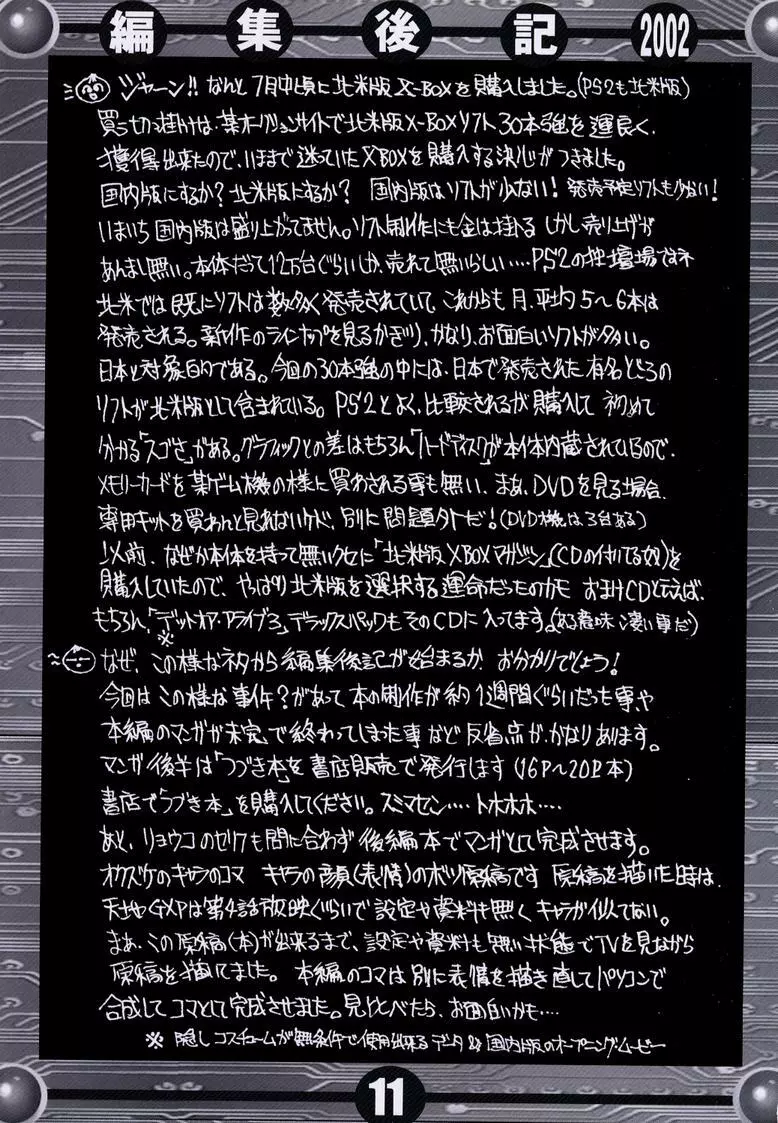 編集後記 2002
ジャーン!! なんと 7月中頃に北米版 X-BOXを購入しました。(PS2も北米版)
買う切っ掛けは、某オークションサイトで北米版X-BOXソフト30本強を運良く、
獲得出来たので、いままで迷っていたXBOXを購入する決心がつきました。
国内版にするか? 北米版にするか? 国内版はソフトが少ない! 発売予定ソフトも少ない!
いまいち国内版は盛り上がってません。ソフト制作にも金は掛る しかし売り上げが
あんまし無い。本体だって12万台ぐらいしか、売れて無いらしい‥‥PS2の独壇場ですネ
北米では既にソフトは数多く発売されていて、これからも月、平均5~6本は
発売される。新作のラインナップを見るかぎり、かなり、お面白いソフトが多い。
日本と対象的である。今回の30本強の中には、日本で発売された有名どころの
ソフトが北米版として含まれている。PS2とよく、比較されるが購入して 初めて
分かる「スゴさ」がある。グラフィックとの差はもちろん「ハードディスク」が本体内蔵されているので、
メモリーカードを某ゲーム機の様に買わされる事も無い、まあ、DVDを見る場合、
専用キットを買わんと見れないケド、別に問題外だ!(DVD機は3台ある)
以前、なぜか本体を持って無いクセに「北米版XBOXマガジン」(CDの付いてる奴)を
購入していたので、やっぱり北米版を選択する運命だったのかも おまけCDと云えば、
もちろん、「デットオア・アライブ3」デラックスパックもそのCDに入ってます。(ある意味 凄い事だ)
※
なぜ、この様なネタから編集後記が始まるか お分かりでしょう!
今回はこの様な事件?があって本の制作が約1週間ぐらいだった事や
本編のマンガが未完、で終わってしまった事など反省点が、かなりあります。
マンガ後半は「つづき本」を書店販売で発行します(16P~20P本)
書店で「つづき本」を購入してください。スミマセン‥‥トホホホ‥‥
あと、リョウコのゼクも間に合わず後編本でマンガとして完成させます。
オクズケのキャラのコマ キャラの顔(表情)のボツ原稿です 原稿を描いた時は、
天地GXPは第4話放映ぐらいで設定や資料も無く キャラが似てない。
まあ、この原稿(本)が出来るまで、設定や資料も無い状態でTVを見ながら
原稿を描いてました。 本編のコマは別に表情を描き直してパソコンで
合成してコマとして完成させました。見比べたら、お面白いかも‥‥
※ 隠しコスチュームが無条件で使用出来るデータ&国内版のオープニングムービー
11